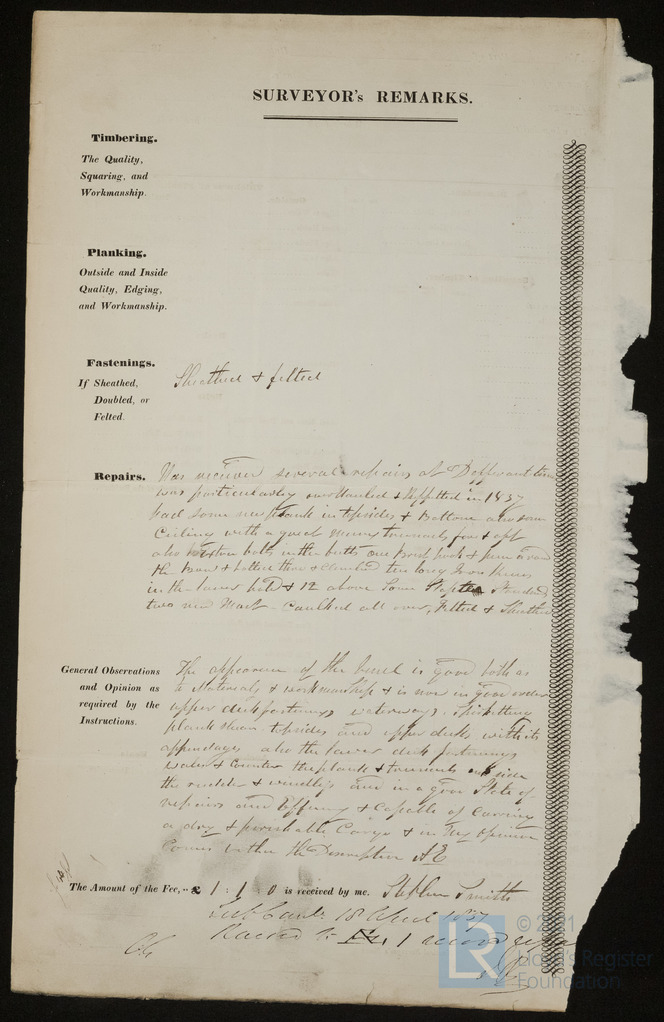 SURVEYOR's REMARKS.
Timbering.
The Quality,
Squaring, and
Workmanship.
Planking.
Outside and Inside
Quality, Edging,
and Workmanship.
Fastenings.
If Sheathed,
Doubled, or
Felted.
Sheathed & felted
Repairs.
Has received several repairs at Different
was particularly & in 1837
had some new plank in topsides & Bottom also some
Ceiling with a great many treenails fore & aft
also bolts in the butts one &
the Bow & bolted thro & clenched ten long Iron Knees
in the lower hold & 12 above some
two new Mast - Caulked all over, Felted &
General Observations
and Opinion as
required by the
Instructions.
The appearance of the vessel is good both as
to Materials & workmanship & is now in good order
upper deck fastenings waterways. Spirketting
plank topsides and upper decks with its
appendages also the lower deck fastenings
Wales & Counter the planks & treenails
the rudder & windlass and in a good State of
repairs and & Capable of Carrying
a dry & perishable Cargo & in my Opinion
Comes within the Description Æ
The Amount of the Fee,--£ 1 : 1 : 0 is received by me. Stephen Smith
18 April 1837
1
© 2021
LR
Lloyd's Register
Foundation